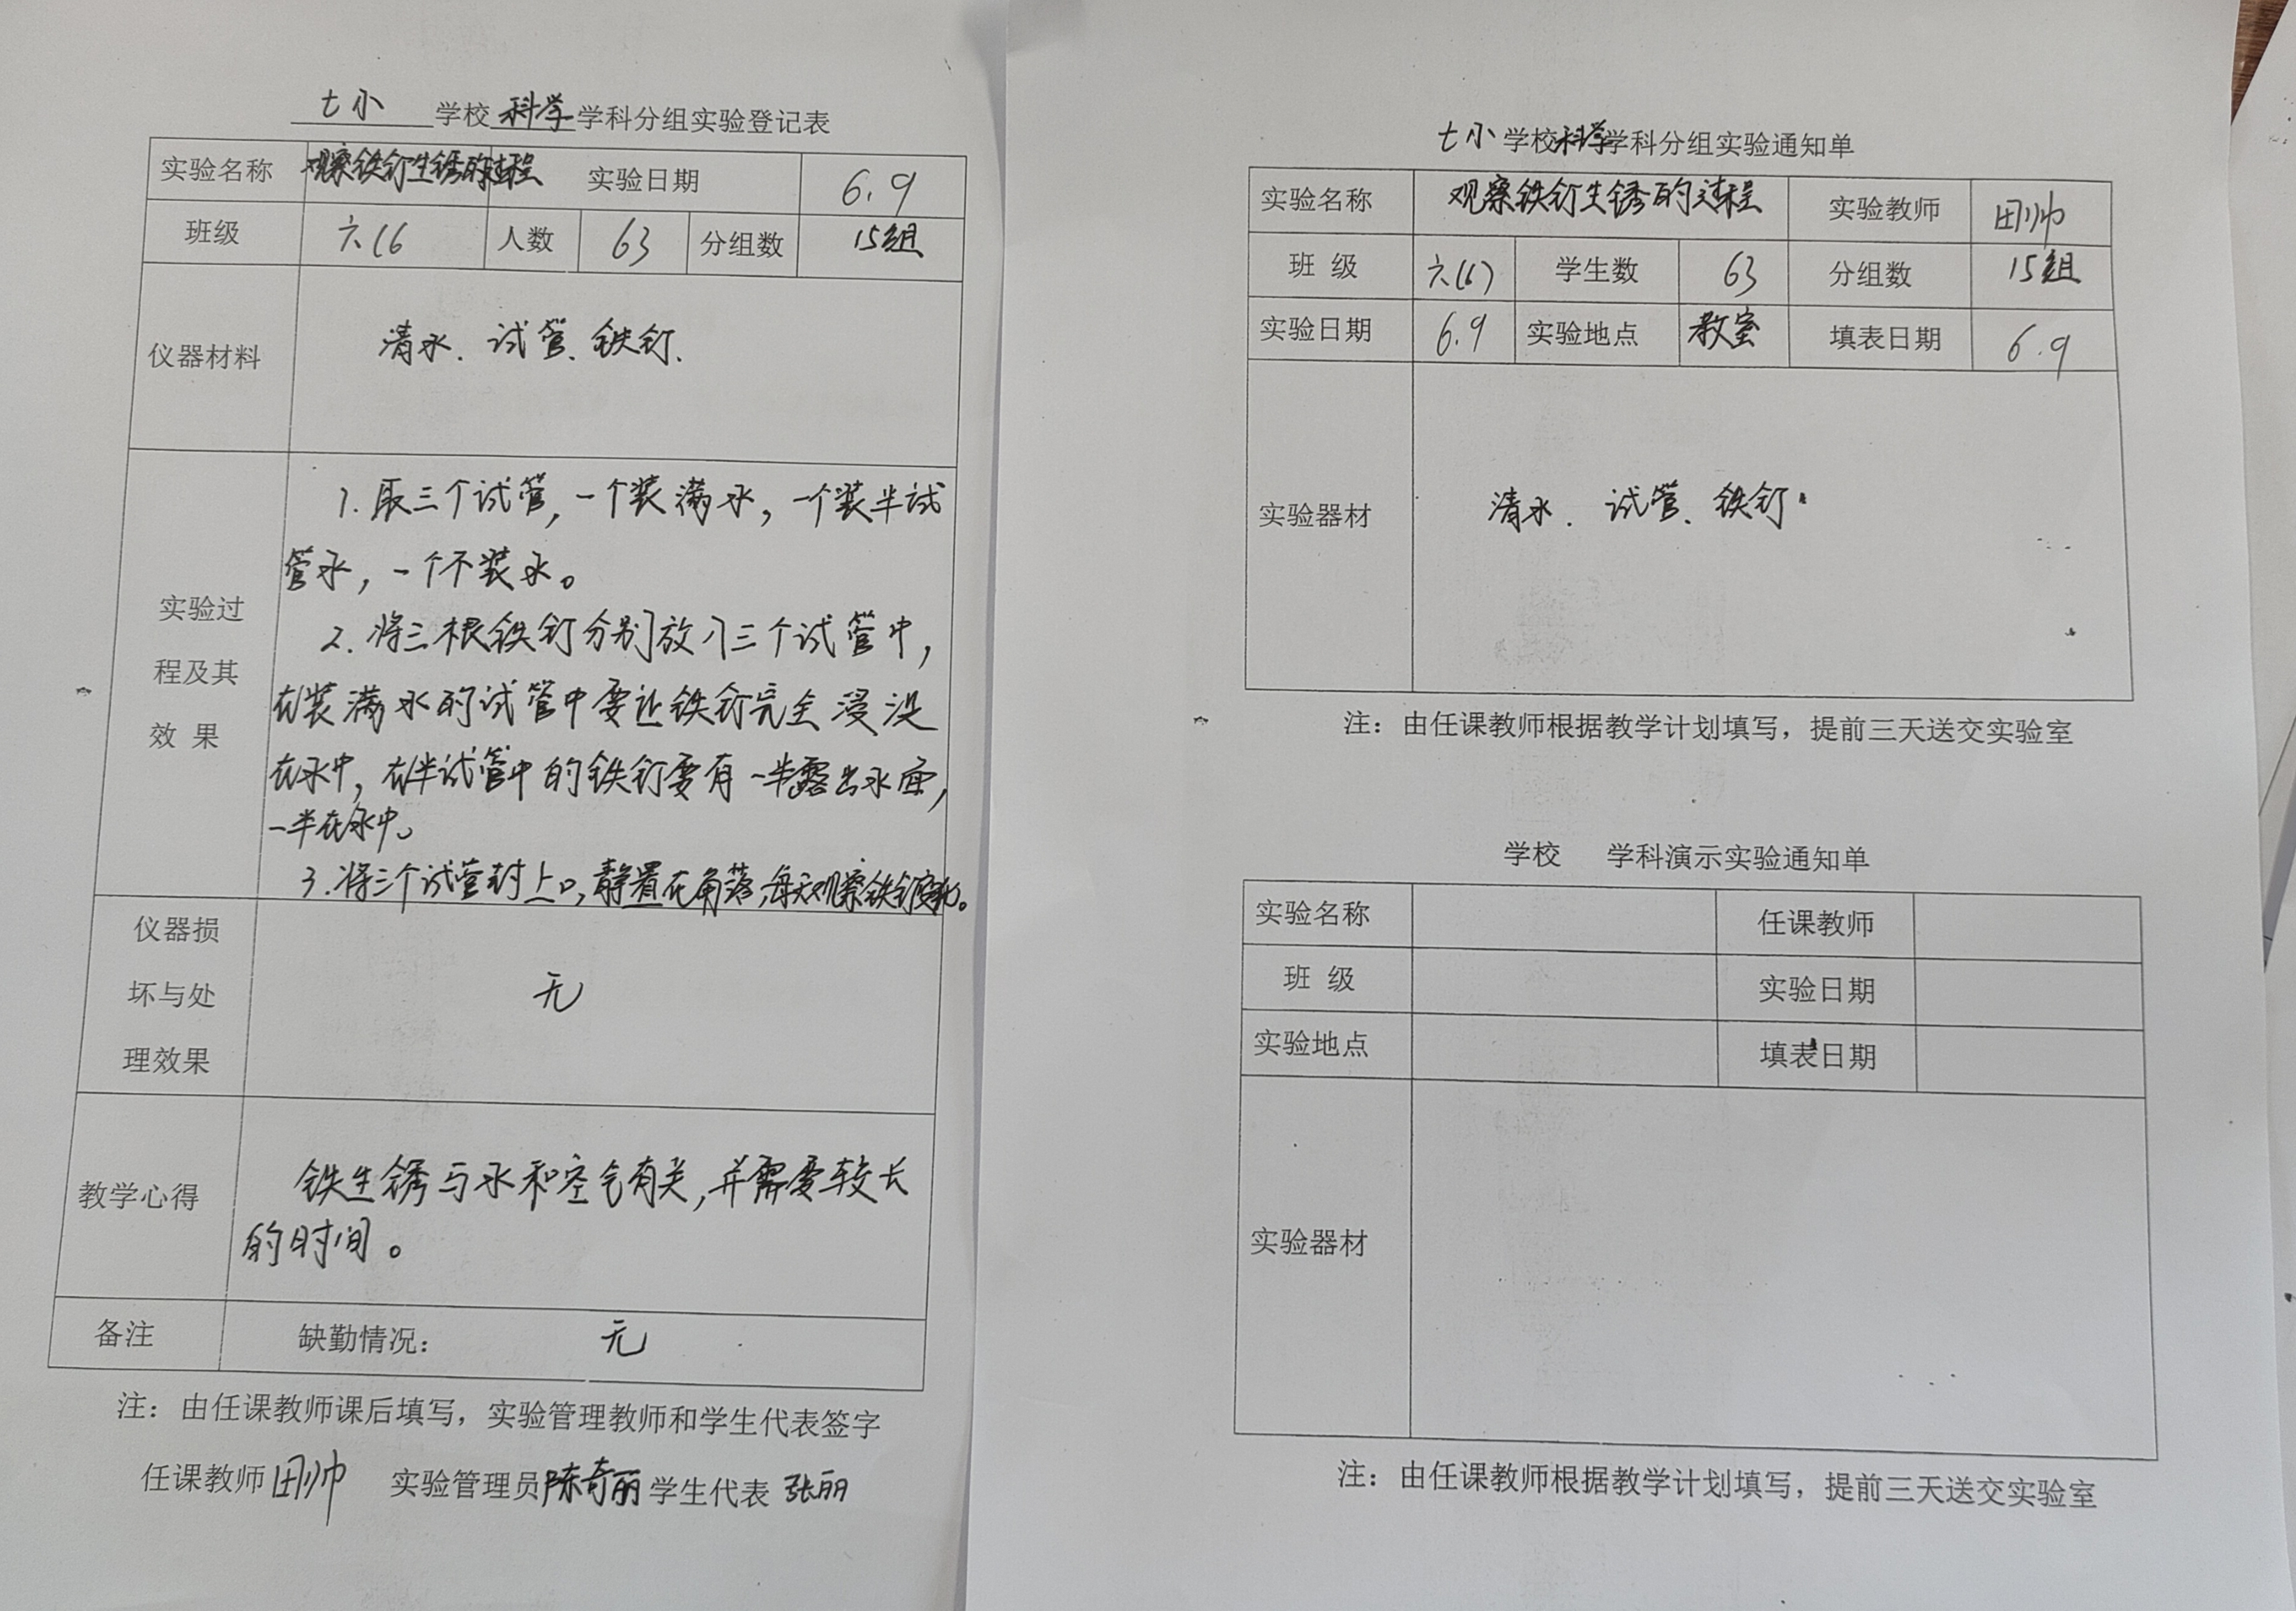 七小 学校 科学 学科分组实验登记表
实验名称 观察铁钉生锈的过程 实验日期 6.9
班级 六(6 人数 63 分组数 15组
仪器材料 清水、试管、铁钉、
实验过
程及其
效 果
1. 取三个试管,一个装满水,一个装半试
管水,一个不装水。
2. 将三根铁钉分别放入三个试管中,
在装满水的试管中要让铁钉完全浸没
在水中,在半试管中的铁钉要有一半露出水面,
一半在水中。
3. 将三个试管封上口,静置在角落,每天观察铁钉变化。
仪器损
坏与处
理效果
无
教学心得
铁生锈与水和空气有关,并需要较长
的时间。
备注 缺勤情况: 无
注:由任课教师课后填写,实验管理教师和学生代表签字
任课教师 田帅 实验管理员 陈奇丽 学生代表 张丽
七小 学校 科学 学科分组实验通知单
实验名称 观察铁钉生锈的过程 实验教师 田帅
班 级 六(6) 学生数 63 分组数 15组
实验日期 6.9 实验地点 教室 填表日期 6.9
实验器材 清水、试管、铁钉
注:由任课教师根据教学计划填写,提前三天送交实验室
学校 学科演示实验通知单
实验名称 任课教师
班 级 实验日期
实验地点 填表日期
实验器材
注:由任课教师根据教学计划填写,提前三天送交实验室